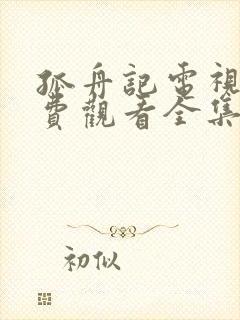 孤舟記電視
費觀看全集
初似